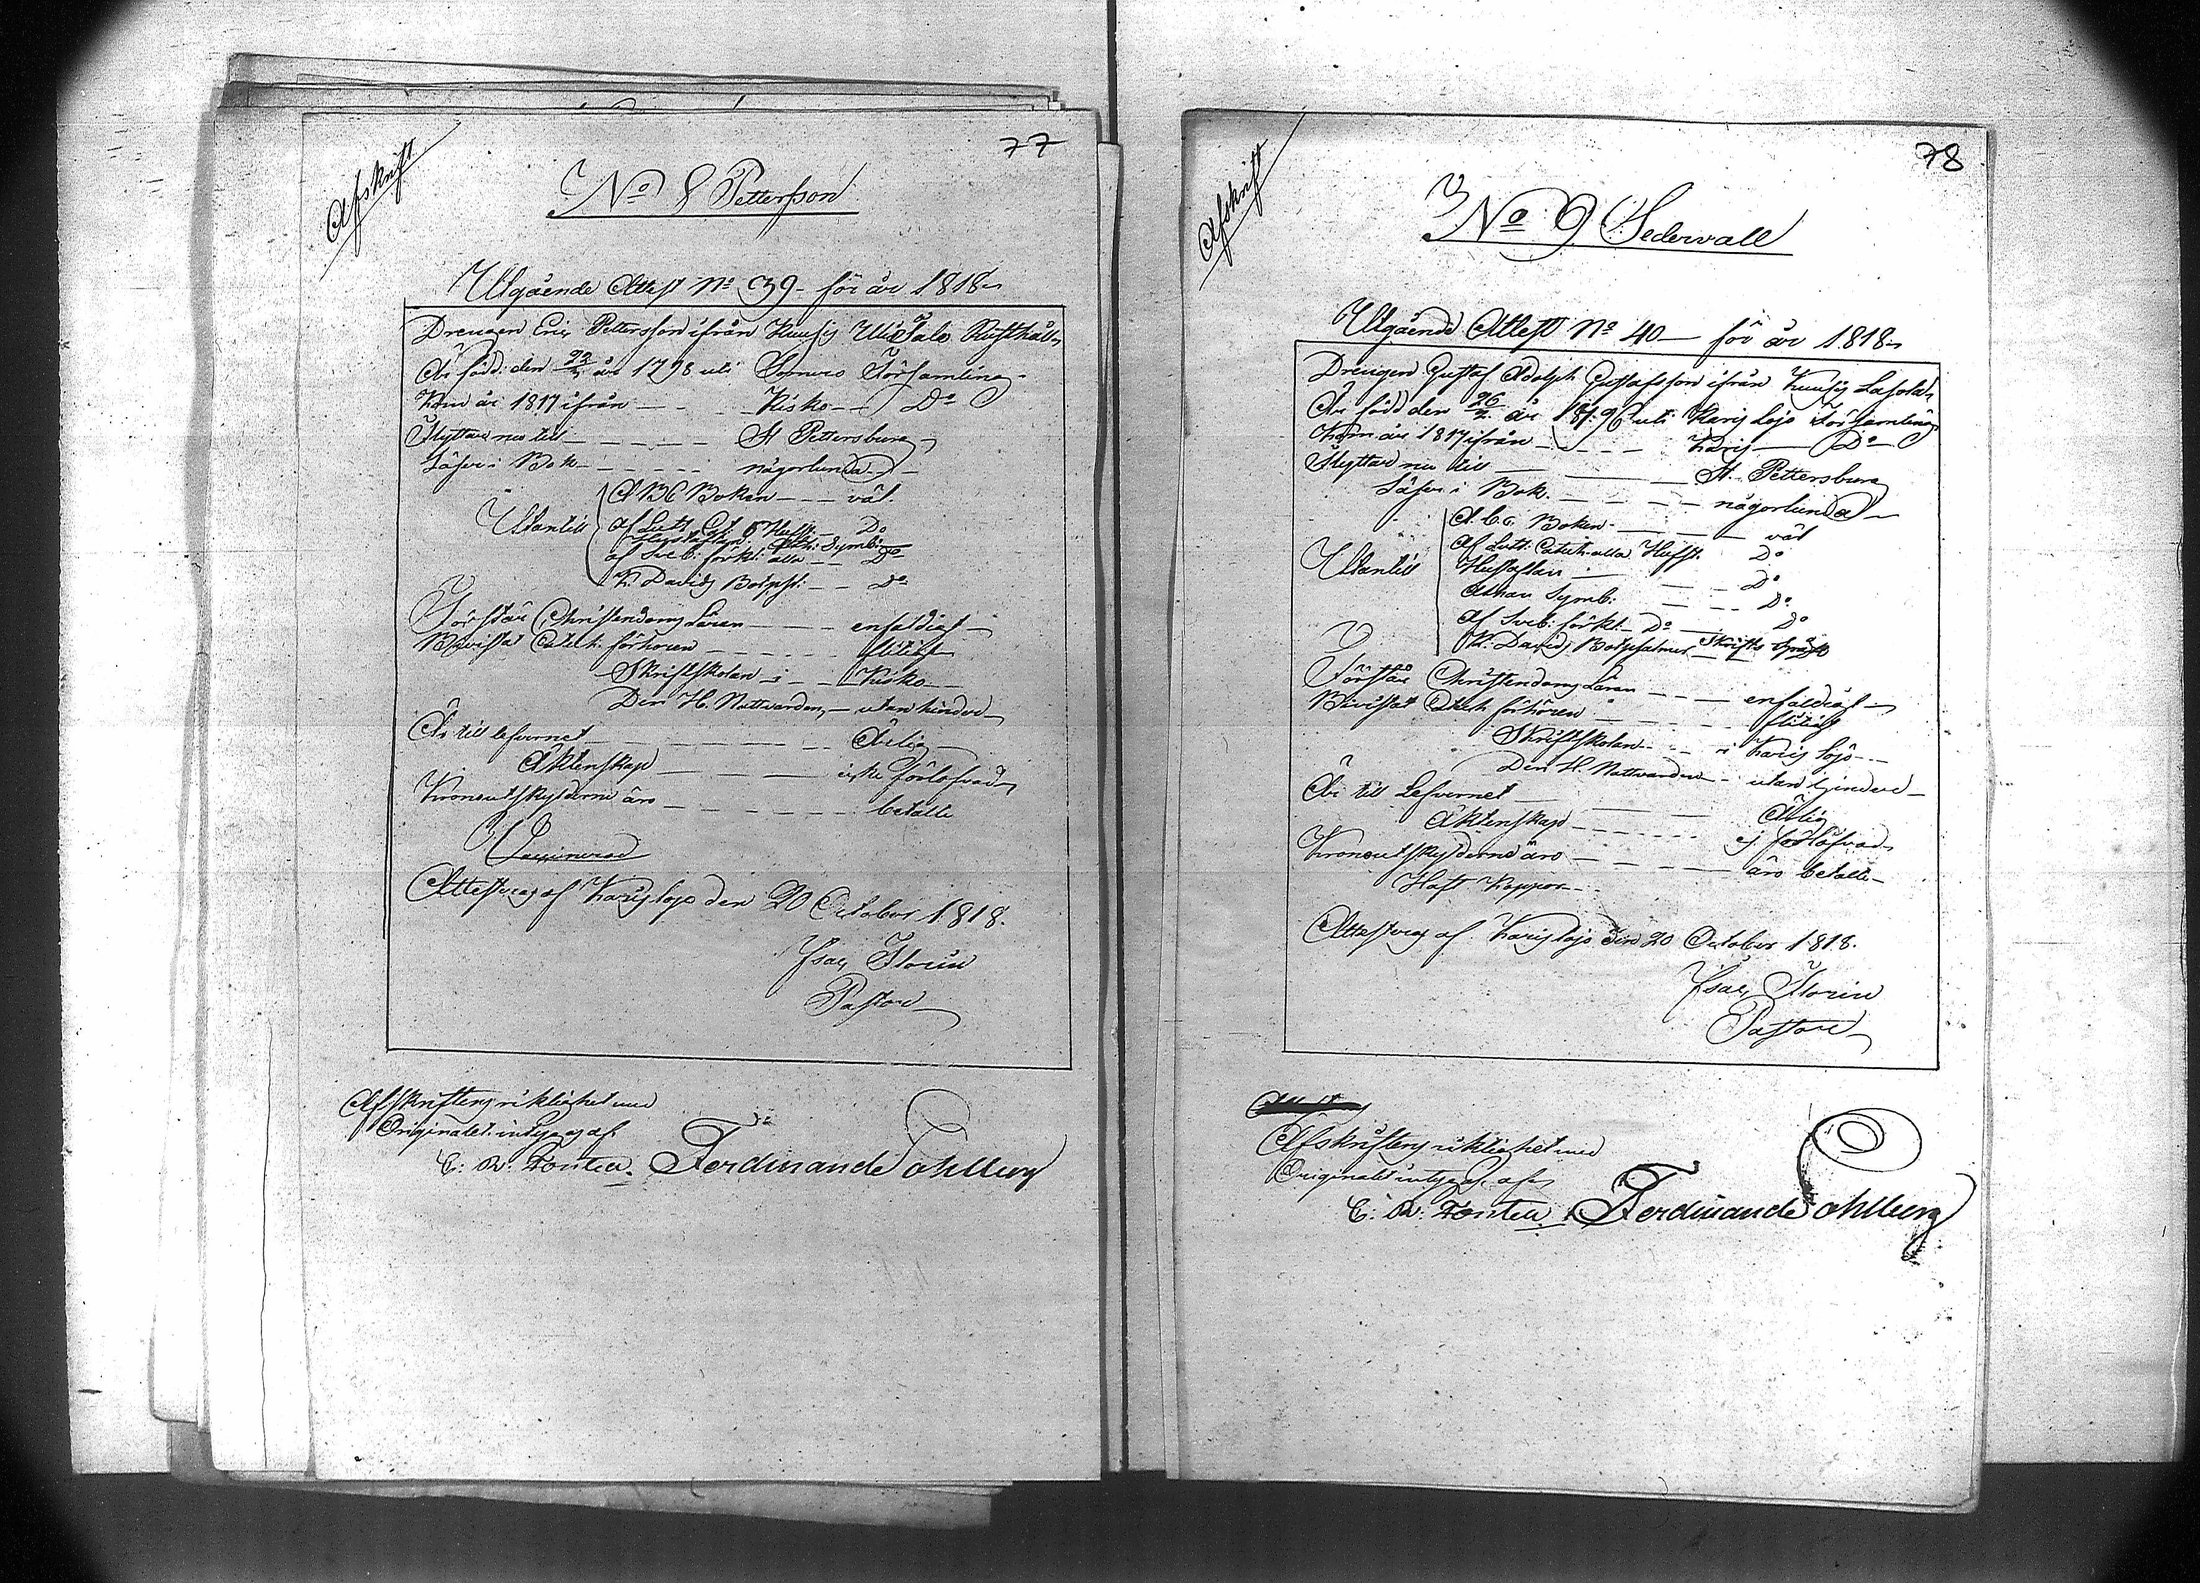 77
Afskrift
No 8 Pettersson
Utgående Attest No 39 för år 1818
Drengen Eric Pettersson ifrån
Är född den år 1798 uti Somero Församling
Kom år 1817 ifrån Kisko Do
Flyttar nu till St Pettersburg
Läser i Bok någorlunda
A B C Boken väl
Utantill
af Luth. Do
af Sveb: förkl: alla Do
K. Davids Botps: Do
Förstår Christendoms Läran enfaldigt
Bivistat Catech. förhören flitigt
Skriftskolan i Kisko
Den H. Nattvarden utan hinder
Är till lefvernet Ärlig
Äktenskap icke förlofvad
Kronoutskylderne äro betalte
Attesteras af Karislojo den 20 October 1818.
Isac Florin
Pastor
Afskriftens riktighet med
Originalet intygas af
Ferdinand Sahlberg
78
Afskrift
No 9 Sedervall
Utgående Attest No 40 för år 1818
Drengen Gustaf Adolph Gustafsson ifrån
Är född den 26 år 1796 uti Karis Lojo Församling
Kom år 1817 ifrån Karis Do
Flyttar nu till St. Pettersburg
Läser i Bok någorlunda
A.b.c. Boken väl
Utantill
Af Luth: Catech. alla Hufst. Do
Hustaflan Do
Athan Symb: Do
Af Sveb: förkl. Do Do
K. Davids Botpsalmer Skrifte
Förstår Christendoms Läran enfaldigt
Bivistat Catech. förhören flitigt
Skriftskolan i Karis lojo
Den H. Nattvarden utan hinder
Är till Lefvernet Ärlig
Äktenskap ej förlofvad
Kronoutskylderne äro äro betalte
Haft Koppor
Attesteras af Karislojo den 20 October 1818.
Isac Florin
Pastor
Afskriftens riktighet med
Originalet intygas af
Ferdinand Sahlberg